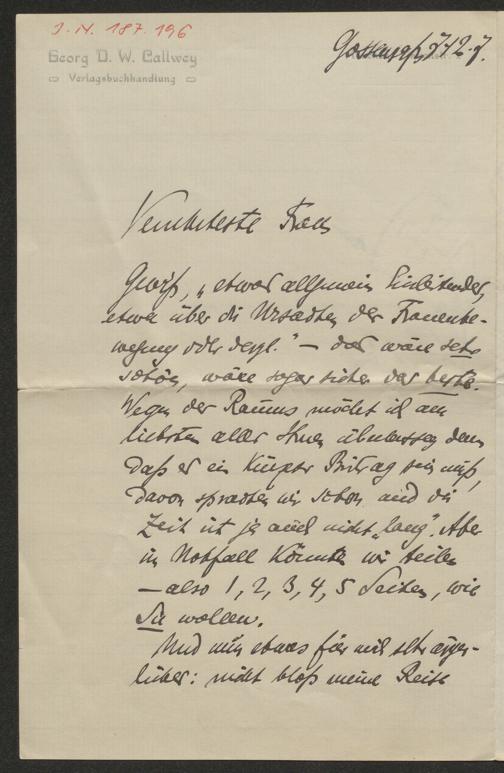 J. N. 187.196
Georg D. W. Callwey
Verlagsbuchhandlung
Verehrteste Frau
Gewiß, „etwas allgemein Einleitendes,
etwa über die Ursachen der Frauenbe-
wegung oder dergl." – das wäre sehr
schön, wäre sogar sicher das beste.
Wegen des Raums möcht ich am
liebsten alles Ihnen überlassen, denn
daß es ein kurzer Beitrag sein muß,
davon sprachen wir schon und die
Zeit ist ja auch nicht „lang". Aber
im Notfall könnten wir teilen
– also 1, 2, 3, 4, 5 Seiten, wie
Sie wollen.
Und nun etwas für mich sehr ärger-
liches: nicht bloß meine Reise